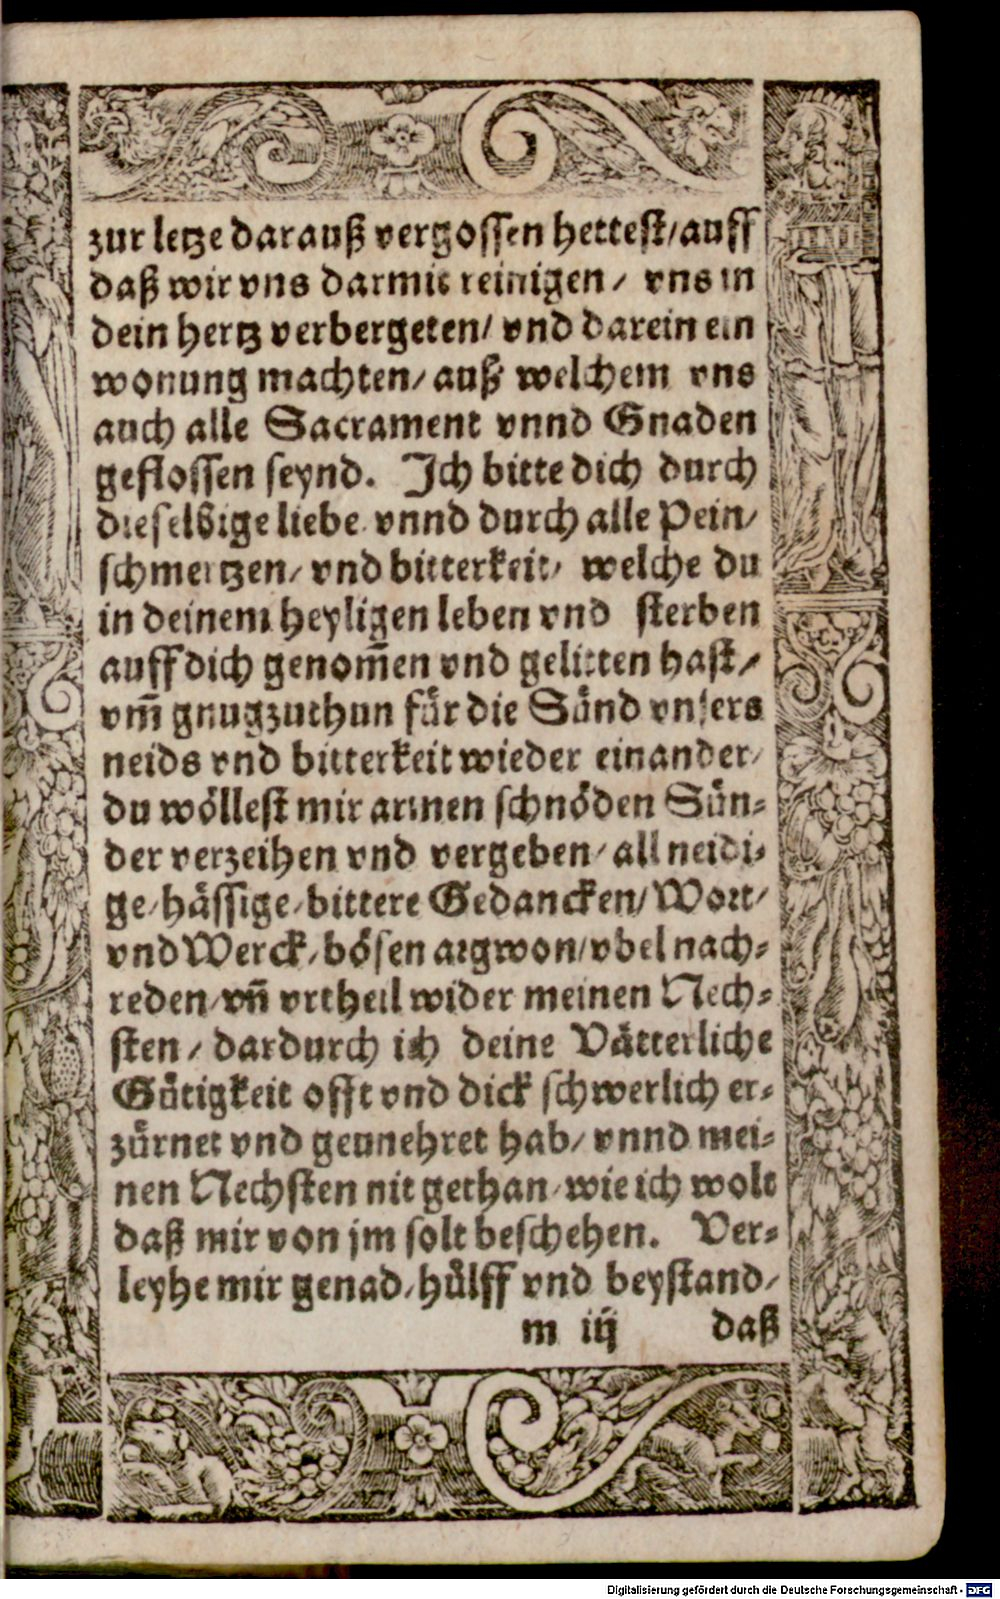 zur letze darauß vergossen hettest/auff
daß wir vns darmit reinigen/ vns in
dein hertz verbergeten/ vnd darein ein
wonung machten/ auß welchem vns
auch alle Sacrament vnnd Gnaden
geflossen seynd. Ich bitte dich durch
dieselbige liebe vnnd durch alle Pein/
schmertzen/ vnd bitterkeit/ welche du
in deinem heyligen leben vnd sterben
auff dich genom̄en vnd gelitten hast/
vm̄ gnugzuthun fůr die Sůnd vnsers
neids vnd bitterkeit wieder einander/
du wöllest mir armen schnöden Sün-
der verzeihen vnd vergeben/ all neidi-
ge/hässige/bittere Gedancken/Wort/
vnd Werck/bösen argwon/vbel nach-
reden/vn̄ vrtheil wider meinen Nech-
sten/ dardurch ich deine Vätterliche
Gůtigkeit offt vnd dick schwerlich er-
zůrnet vnd geunehret hab/ vnnd mei-
nen Nechsten nit gethan/wie ich wolt
daß mir von jm solt beschehen. Ver-
leyhe mir genad/hůlff vnd beystand/
m iij daß
Digitalisierung gefördert durch die Deutsche Forschungsgemeinschaft - DFG